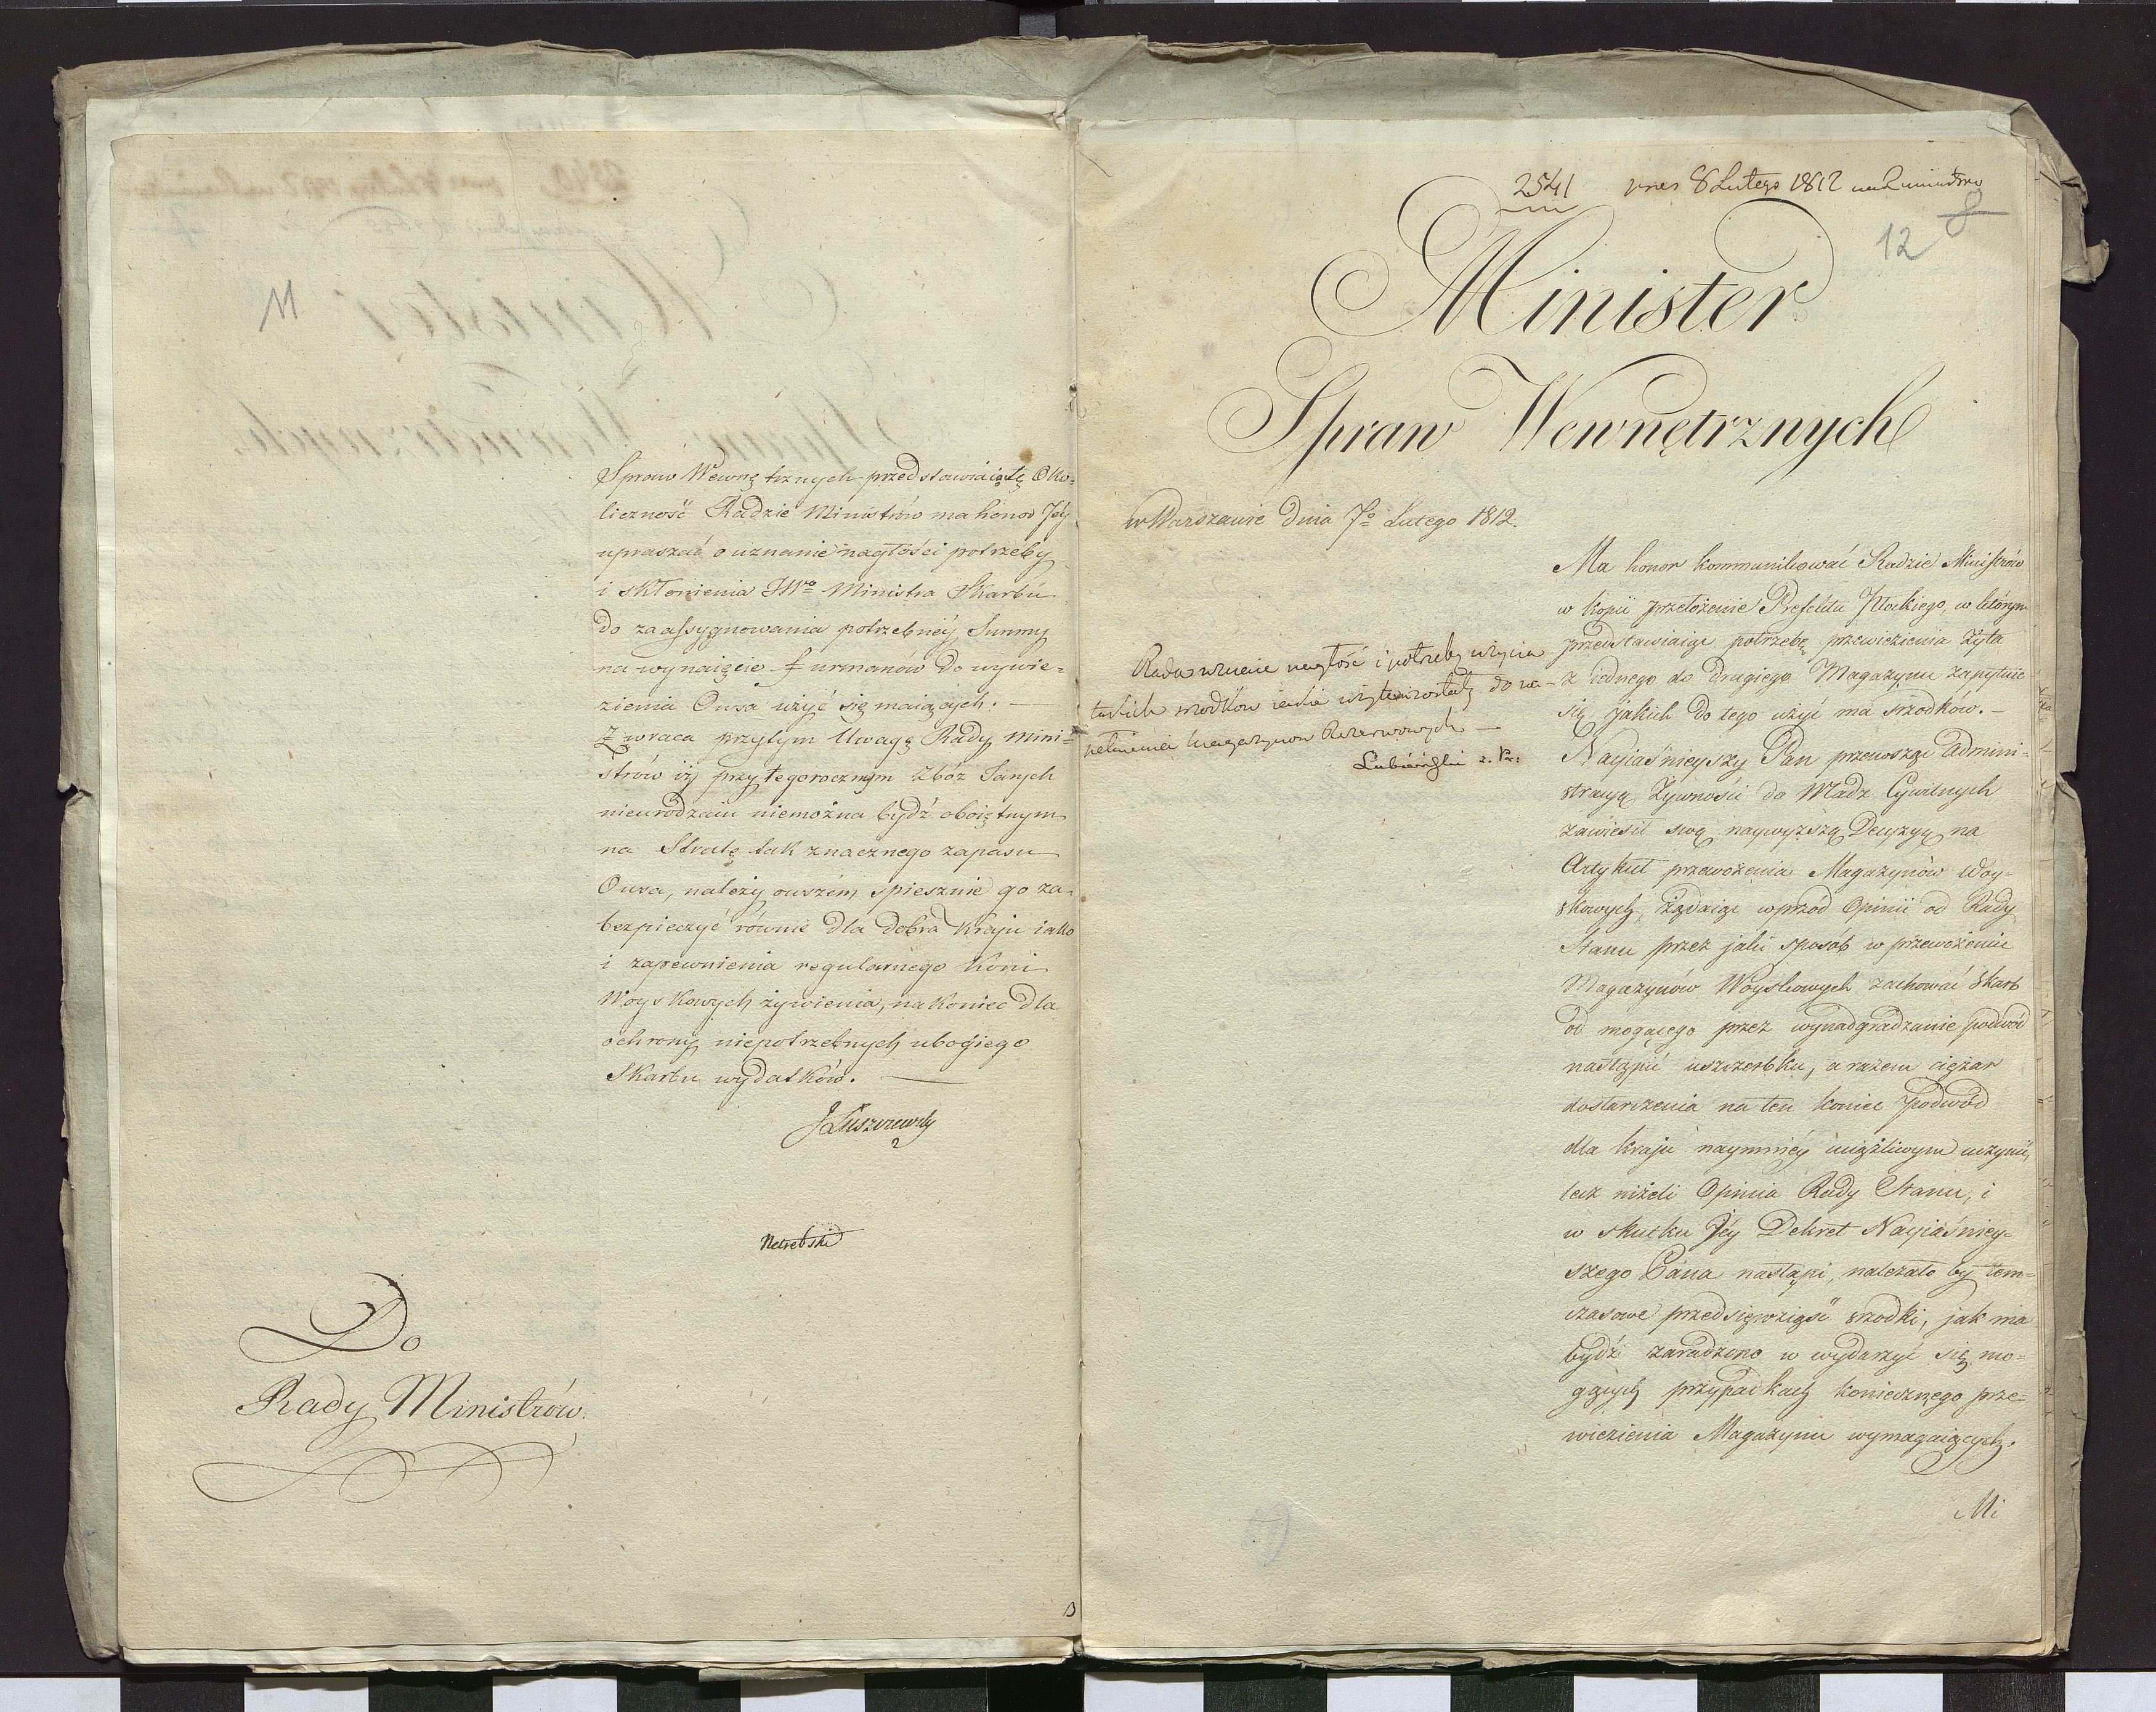 11
Spraw Wewnętrznych przedstawiaiąc tę Oko-
liczność Radzie Ministrów ma honor Jéy
upraszać o uznanie nagłości potrzeby
i skłonienia JWo Ministra Skarbu
do zaassygnowania potrzebnéy Summy
na wynaięcie furmanów do wywie-
zienia Owsa użyć się maiących. —
Zwraca przytym Uwagę Rady Mini-
strów iż przy tegorocznym Zbóż Jarych
nieurodzaiu niemożna bydź oboiętnym
na Stratę tak znacznego zapasu
Owsa, należy owszem spiesznie go za-
bezpieczyć równie dla dobra Kraju iako
i zapewnienia regularnego Koni
Woyskowych żywienia, nakoniec dla
ochrony niepotrzebnych ubogiego
Skarbu wydatków. —
JŁuszczewsky
Netrebski
Do
Rady Ministrów.
2541 8 Lutego 1812
8
12
Minister
Spraw Wewnętrznych
w Warszawie Dnia 7o Lutego 1812.
Rada uznaie nagłość i potrzebę użycia
takich srodków iakie użytemi zostały do na-
pełnienia Magazynow Rezerwowych —
Lubieński z. Pr:
Ma honor kommunikować Radzie Ministrów
w kopii przełożenie Prefekta Płockiego, w którym
przedstawiaiąc potrzebę przewiezienia Żyta
z iednego do drugiego Magazynu zapytuie
się jakich do tego użyć ma srzodków. —
Nayiaśnieyszy Pan przenosząc Admini-
stracyą Żywności do Władz Cywilnych
zawiesił swą naywyższą Decyzyą na
Artykuł przewożenia Magazynów Woy-
skowych, żądaiąc wprzód Opinii od Rady
Stanu przez jaki sposób w przewożeniu
Magazynów Woyskowych zachować Skarb
od mogącego przez wynadgradzanie podwód
nastąpić uszczerbku, a razem ciężar
dostarczenia na ten koniec podwód
dla kraju naymniéy uciążliwym uczynić,
lecz niżeli Opinia Rady Stanu, i
w skutku Jéy Dekret Nayiaśniey-
szego Pana nastąpi, należało by tem-
czasowe przedsięwziąść srzodki, jak ma
bydź zaradzono w wydarzyć się mo-
gących przypadkach koniecznego prze-
wiezienia Magazynu wymagaiących.
Mi